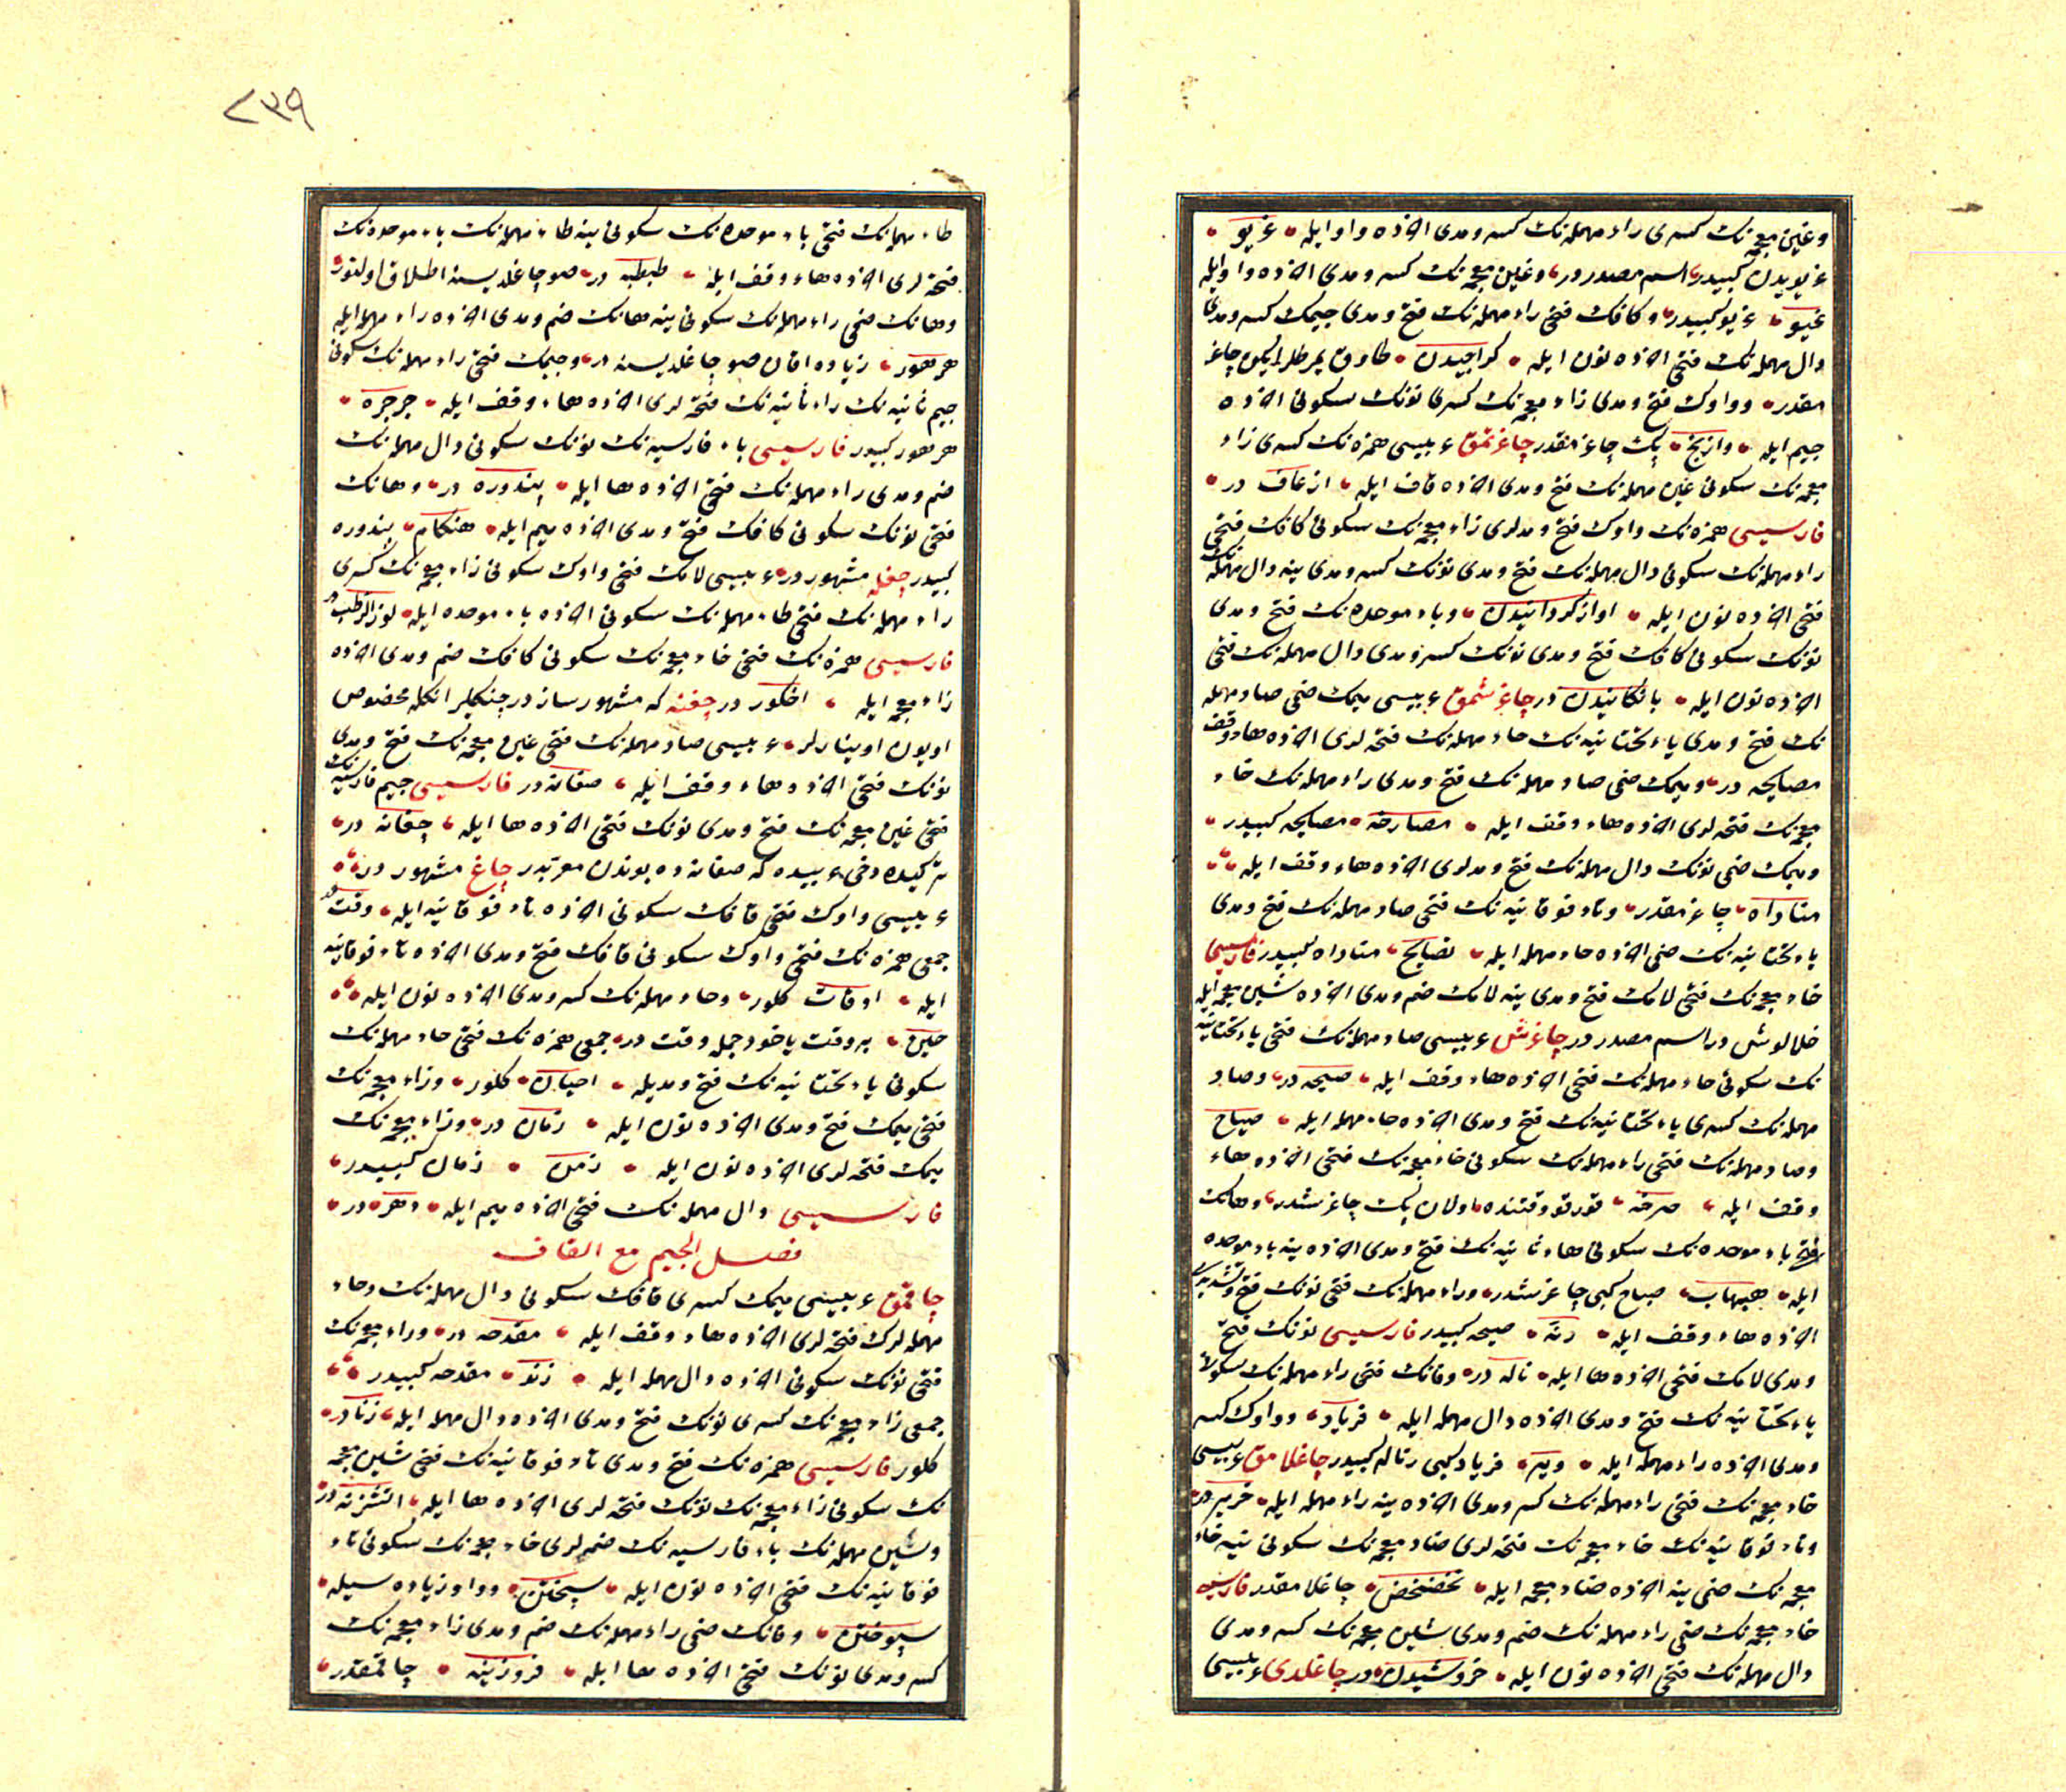 وغین معجمه‌نك كسری راء مهمله‌نك كسر ومدی اخرده واو ایله غریو
غریویدن كبیدر اسم مصدردر وغین معجمه‌نك كسر ومدی اخرده واو ایله
غیو غریو كبیدر وكافك فتحی راء مهمله‌نك فتح ومدی جیمك كسر ومدی
دال مهمله‌نك فتحی اخرده نون ایله كراجیدن طاوق یمرطلر ایكن چاغر
مقدر وواوك فتح ومدی زاء معجمه‌نك كسری نونك سكونی اخرده
جیم ایله وازنج پك چاغرمقدر چاغرتمق عربیسی همزه‌نك كسری زاء
معجمه‌نك سكونی عین مهمله‌نك فتح ومدی اخرده قاف ایله ازعاق در
فارسیسی همزه‌نك واوك فتح ومدلری زاء معجمه‌نك سكونی كافك فتحی
راء مهمله‌نك سكونی دال مهمله‌نك فتح ومدی نونك كسر ومدی ینه دال مهمله‌نك
فتحی اخرده نون ایله اوازكردانیدن وباء موحده‌نك فتح ومدی
نونك سكونی كافك فتح ومدی نونك كسر ومدی دال مهمله‌نك فتحی
اخرده نون ایله بانكانیدن در چاغرشمق عربیسی میمك ضمی صاد مهمله
نك فتح ومدی یاء تحتانیه‌نك حاء مهمله‌نك فتحه‌لری اخرده هاء وقف
مصایحه در ومیمك ضمی صاد مهمله‌نك فتح ومدی راء مهمله‌نك خاء
معجمه‌نك فتحه‌لری اخرده هاء وقف ایله مصارخه مصایحه كبیدر
ومیمك ضمی نونك دال مهمله‌نك فتح ومدلری اخرده هاء وقف ایله
مناداه چاغرمقدر وتاء فوقانیه‌نك فتحی صاد مهمله‌نك فتح ومدی
یاء تحتانیه‌نك ضمی اخرده حاء مهمله ایله تصایح مناداه كبیدر فارسیسی
خاء معجمه‌نك فتحی لامك فتح ومدی ینه لامك ضم ومدی اخرده شین معجمه ایله
خلالوش در اسم مصدردر چاغرش عربیسی صاد مهمله‌نك فتحی یاء تحتانیه
نك سكونی حاء مهمله‌نك فتحی اخرده هاء وقف ایله صیحه در وصاد
مهمله‌نك كسری یاء تحتانیه‌نك فتح ومدی اخرده حاء مهمله ایله صیاح
وصاد مهمله‌نك فتحی راء مهمله‌نك سكونی خاء معجمه‌نك فتحی اخرده هاء
وقف ایله صرخه قورقو وقتنده اولان پك چاغرشدر وهانك
فتحی باء موحده‌نك سكونی هاء ثانیه‌نك فتح ومدی اخرده ینه باء موحده
ایله هبهاب صیاح كبی چاغرشدر وراء مهمله‌نك فتحی نونك فتح وتشدیدی
اخرده هاء وقف ایله رنه صیحه كبیدر فارسیسی نونك فتح
ومدی لامك فتحی اخرده ها ایله ناله در وفانك فتحی راء مهمله‌نك سكونی
یاء تحتانیه‌نك فتح ومدی اخرده دال مهمله ایله فریاد وواوك كسر
ومدی اخرده راء مهمله ایله ویر فریاد كبی وناله كبیدر چاغلامق عربیسی
خاء معجمه‌نك فتحی راء مهمله‌نك كسر ومدی اخرده ینه راء مهمله ایله خریر در
وتاء فوقانیه‌نك خاء معجمه‌نك فتحه‌لری ضاد معجمه‌نك سكونی ینه خاء
معجمه‌نك ضمی ینه اخرده ضاد معجمه ایله تخضخض چاغلامقدر فارسیسی
خاء معجمه‌نك ضمی راء مهمله‌نك ضم ومدی شین معجمه‌نك كسر ومدی
دال مهمله‌نك فتحی اخرده نون ایله خروشیدن در چاغلدی عربیسی
٢٣٩
طاء مهمله‌نك فتحی باء موحده‌نك سكونی ینه طاء مهمله‌نك باء موحده‌نك
فتحه‌لری اخرده هاء وقف ایله طبطبه در صو چاغلدیسنه اطلاق اولنور
وهانك ضمی راء مهمله‌نك سكونی ینه هانك ضم ومدی اخرده راء مهمله ایله
هرهور زیاده اقان صو چاغلدیسنه در وجیمك فتحی راء مهمله‌نك سكونی
جیم ثانیه‌نك راء ثانیه‌نك فتحه‌لری اخرده هاء وقف ایله جرجره
هرهور كبیدر فارسیسی باء فارسیه‌نك نونك سكونی دال مهمله‌نك
ضم ومدی راء مهمله‌نك فتحی اخرده ها ایله پندوره در وهانك
فتحی نونك سكونی كافك فتح ومدی اخرده میم ایله هنكام پندوره
كبیدر چغله مشهوردر عربیسی لامك فتحی واوك سكونی زاء معجمه‌نك كسری
راء مهمله‌نك فتحی طاء مهمله‌نك سكونی اخرده باء موحده ایله لوز الرطب در
فارسیسی همزه‌نك فتحی خاء معجمه‌نك سكونی كافك ضم ومدی اخرده
زاء معجمه ایله اخكوز در چغنه كه مشهور سازدر چنكیلر انكله مخصوص
اویون اوینارلر عربیسی صاد مهمله‌نك فتحی غین معجمه‌نك فتح ومدی
نونك فتحی اخرده هاء وقف ایله صغانه در فارسیسی جیم فارسیه‌نك
فتحی غین معجمه‌نك فتح ومدی نونك فتحی اخرده ها ایله چغانه در
تركیده دخی عربیده كه صغانه ده بوندن معربدر چاغ مشهوردر
عربیسی واوك فتحی قافك سكونی اخرده تاء فوقانیه ایله وقت در
جمعی همزه‌نك فتحی واوك سكونی قافك فتح ومدی اخرده تاء فوقانیه
ایله اوقات كلور وحاء مهمله‌نك كسر ومدی اخرده نون ایله
حین بر وقت یاخود جمله وقت در جمعی همزه‌نك فتحی حاء مهمله‌نك
سكونی یاء تحتانیه‌نك فتح ومدیله احیان كلور وزاء معجمه‌نك
فتحی میمك فتح ومدی اخرده نون ایله زمان در وزاء معجمه‌نك
میمك فتحه‌لری اخرده نون ایله زمن زمان كبیدر
فارسیسی دال مهمله‌نك فتحی اخرده میم ایله دهره در
فصل الجیم مع القاف
چاقمق عربیسی میمك كسری قافك سكونی دال مهمله‌نك وحاء
مهمله‌لرك فتحه‌لری اخرده هاء وقف ایله مقدحه در وزاء معجمه‌نك
فتحی نونك سكونی اخرده دال مهمله ایله زند مقدحه كبیدر
جمعی زاء معجمه‌نك كسری نونك فتح ومدی اخرده دال مهمله ایله زناد
كلور فارسیسی همزه‌نك فتح ومدی تاء فوقانیه‌نك فتحی شین معجمه
نك سكونی زاء معجمه‌نك نونك فتحه‌لری اخرده ها ایله اتشزنه در
وسین مهمله‌نك باء فارسیه‌نك ضمه‌لری خاء معجمه‌نك سكونی تاء
فوقانیه‌نك فتحی اخرده نون ایله سپختن وواو زیاده‌سیله
سپوختن وفانك ضمی راء مهمله‌نك ضم ومدی زاء معجمه‌نك
كسر ومدی نونك فتحی اخرده ها ایله فروزینه چاقمقدر